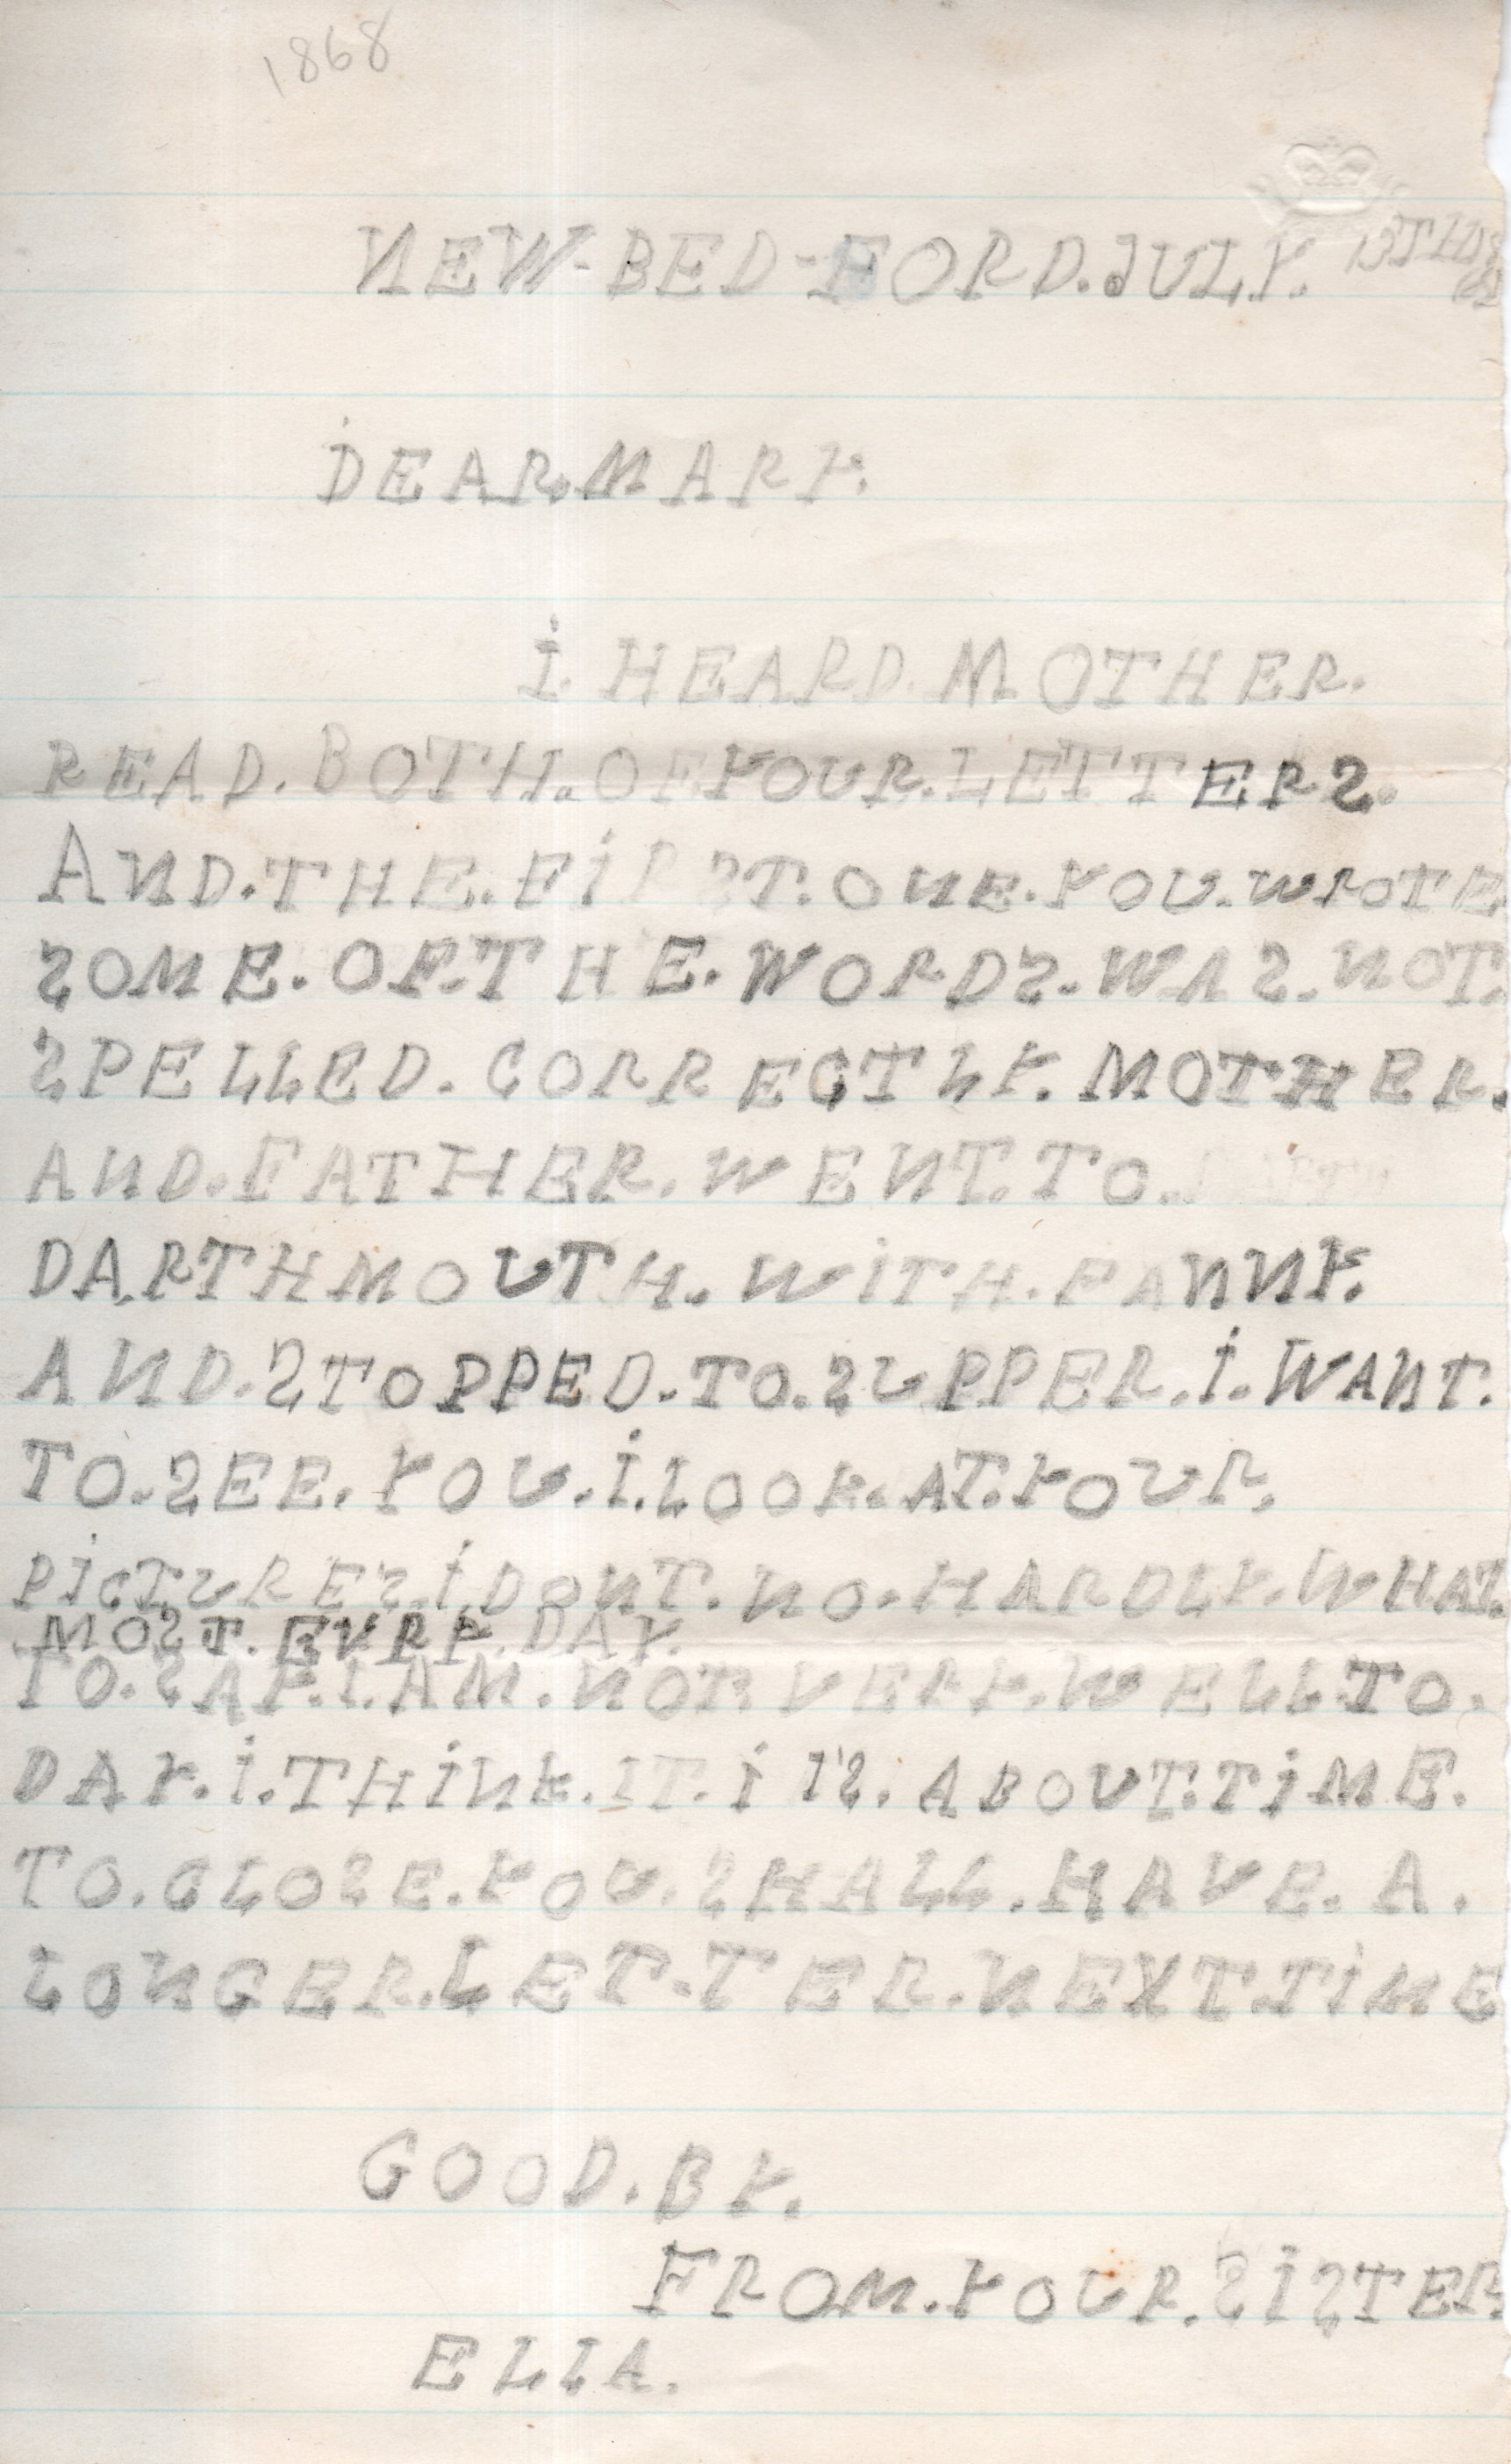 1868
NEW-BED-FORD.JULY. 13TH
DEAR.MARY.
i.HEARD.MOTHER.
READ.BOTH.OF.YOUR.LETTERS.
AND.THE.FiRST.ONE.YOU.WROTE
SOME.OF.THE.WORDS.WAS.NOT.
SPELLED.CORRECTLY.MOTHER.
AND.FATHER.WENT.TO.
DARTHMOUTH.WiTH.FANNY.
AND.STOPPED.TO.SUPPER.i.WANT.
TO.SEE.YOU.i.LOOK.AT.YOUR.
PiCTURES.iDONT.NO.HARDLY.WHAT.
MOST.EVRY.DAY.
TO.SAY.I.AM.NOT.VERY.WELL.TO.
DAY.i.THiNK.IT.i IS.ABOUT.TiME.
TO.CLOSE.YOU.SHALL.HAVE.A.
LONGER.LET-TER.NEXT.TiME
GOOD.BY.
FROM.YOUR.SiSTER.
ELLA.